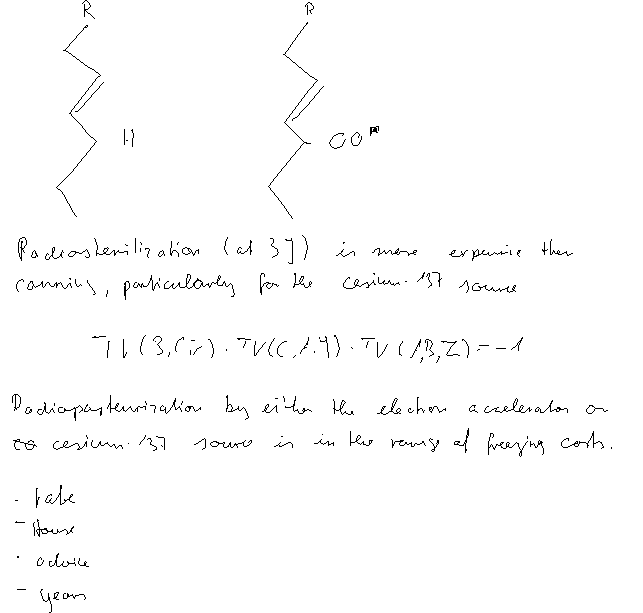 R R
H COº
Radiosterilization (at 3]) is more expensive than
canning, particularly for the cesium-137 source
TV(B,C,X) · TV(C,A,Y) · TV(A,B,Z) = -1
Radiopasteurization by either the electron accelerator or
cesium-137 source is in the range of freezing costs.
· take
- House
· advice
- years